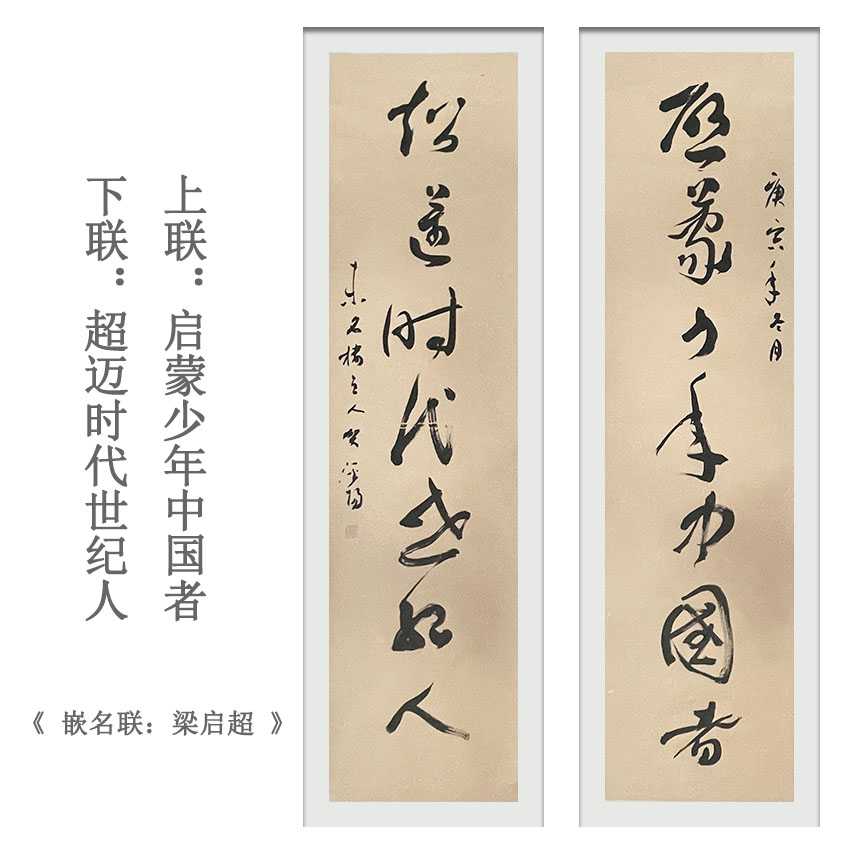 上联：启蒙少年中国者
下联：超迈时代世纪人
《 嵌名联：梁启超 》
启蒙少年中国者
庚寅年冬月
超迈时代世纪人
未名楼主人